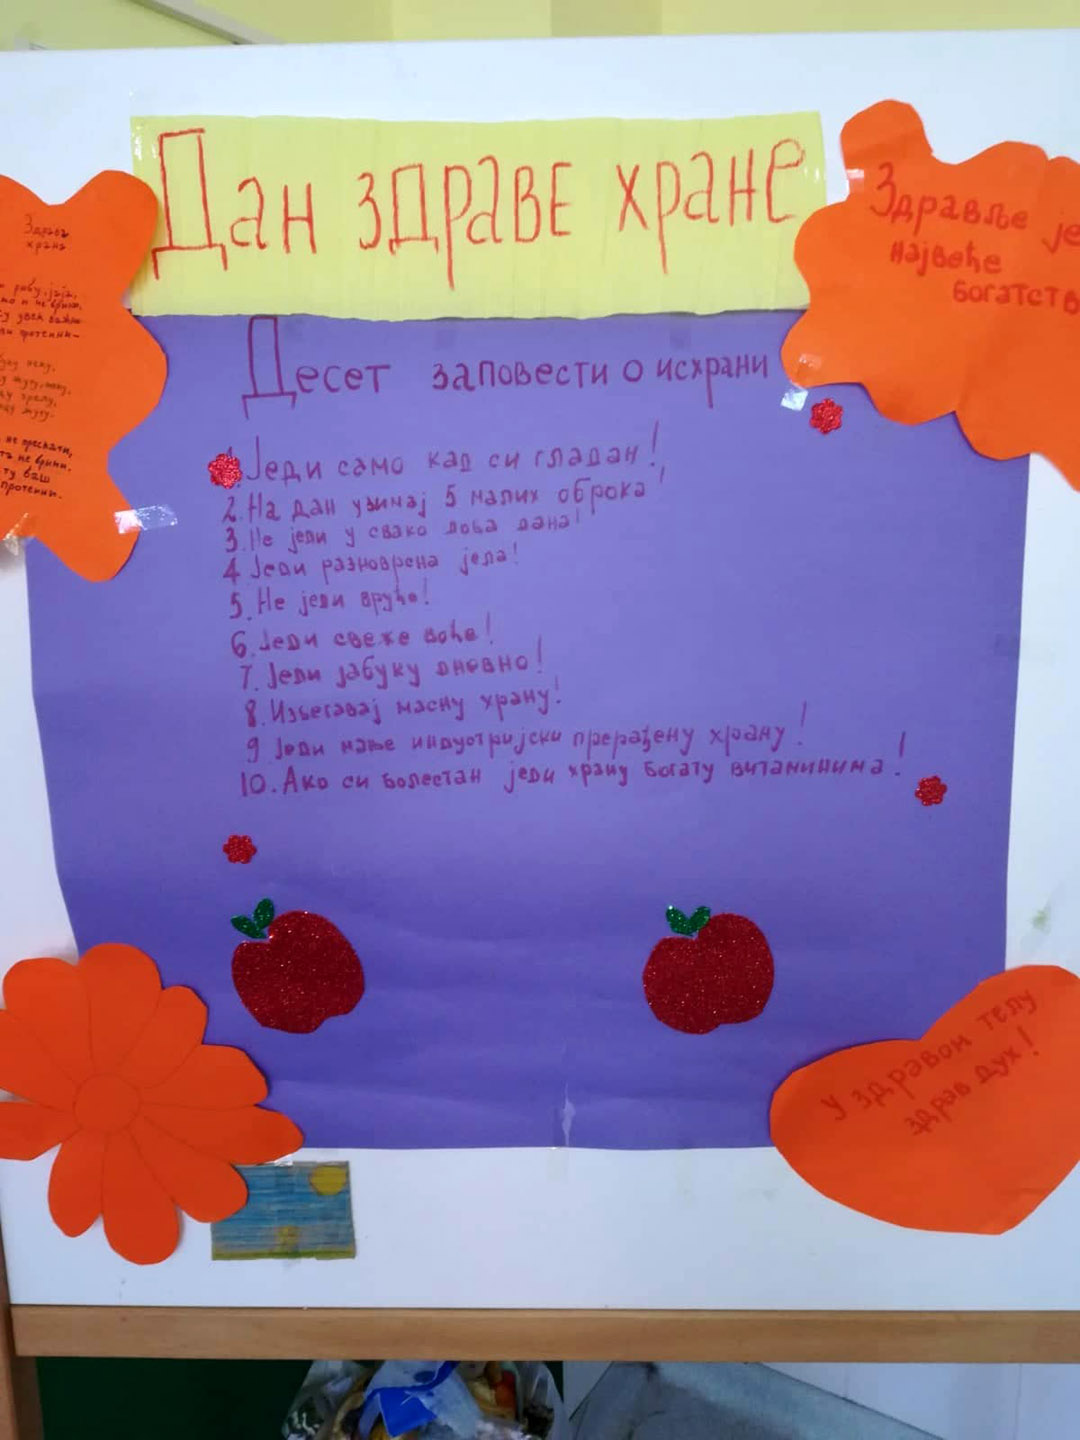 Дан здраве хране
Здрава
храна
рибу, јаја,
и не брини,
увек важно
протеини-
не прскати,
не брини.
ту ваш
протеини.
Здравље је
највеће
богатств
Десет заповести о исхрани
1. Једи само кад си гладан!
2. На дан узимај 5 малих оброка!
3. Не једи у свако доба дана!
4 Једи разноврсна јела!
5. Не једи вруће!
6. Једи свеже воће!
7. Једи јабуку дневно!
8. Избегавај масну храну!
9 Једи мање индустријски прерађену храну!
10. Ако си болестан једи храну богату витаминима!
У здравом телу
здрав дух!